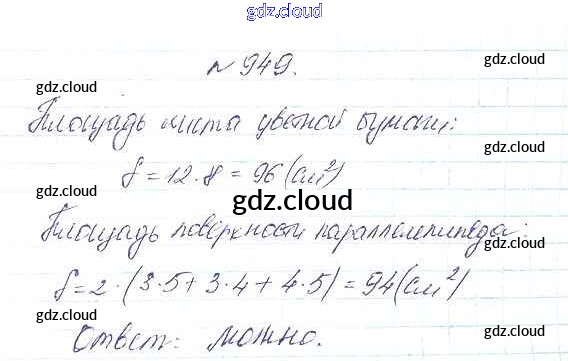 gdz.cloud
№ 949.
gdz.cloud gdz.cloud
Площадь листа цветной бумаги:
gdz.cloud gdz.cloud
S = 12·8 = 96 (см²)
gdz.cloud
Площадь поверхности параллелепипеда:
S = 2·(3·5 + 3·4 + 4·5) = 94 (см²)
gdz.cloud gdz.cloud
Ответ: можно.
gdz.cloud